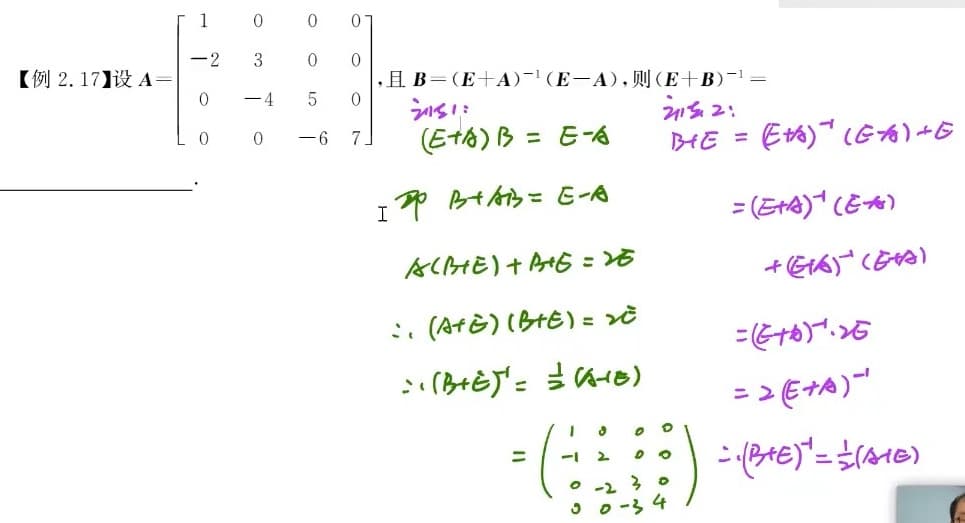 【例 2.17】设 A= [ 1 0 0 0
-2 3 0 0
0 -4 5 0
0 0 -6 7 ] ,且 B=(E+A)⁻¹(E-A),则(E+B)⁻¹=
______.
方法1:
(E+A)B = E-A
即 B+AB = E-A
A(B+E)+B+E=2E
∴ (A+E)(B+E)=2E
∴ (B+E)⁻¹ = ½(A+E)
= ( 1 0 0 0
-1 2 0 0
0 -2 3 0
0 0 -3 4 )
方法2:
B+E = (E+A)⁻¹(E-A)+E
=(E+A)⁻¹(E-A)
+(E+A)⁻¹(E+A)
=(E+A)⁻¹·2E
= 2(E+A)⁻¹
∴(B+E)⁻¹=½(A+E)